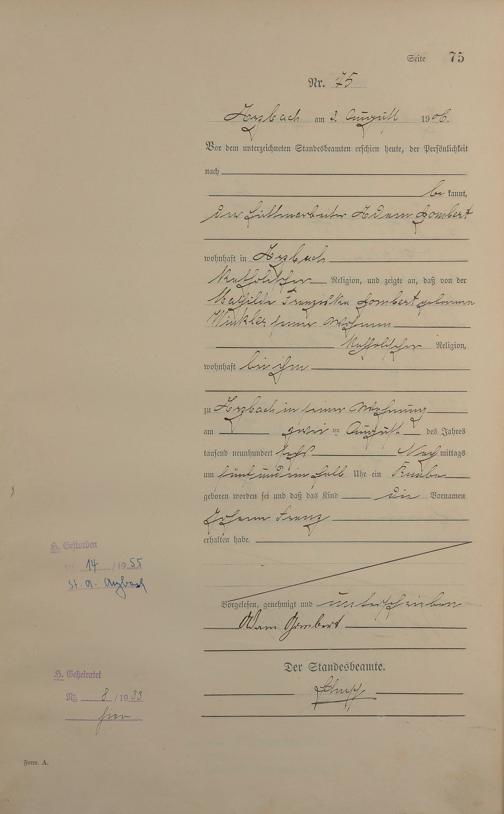 Seite 75
Nr. 75
Arzbach am 3. August 1906.
Vor dem unterzeichneten Standesbeamten erschien heute, der Persönlichkeit
nach
be kannt,
der Hüttenarbeiter Adam Gombert
wohnhaft in Arzbach
katholischer Religion, und zeigte an, daß von der
Mathilde Franziska Gombert geborenen
Winkler seiner Ehefrau
katholischer Religion,
wohnhaft bei ihm
zu Arzbach in seiner Wohnung
am zwei ten August des Jahres
tausend neunhundert sechs Nach mittags
um fünf und ein halb Uhr ein Knabe
geboren worden sei und daß das Kind die Vornamen
Franz
erhalten habe.
Vorgelesen, genehmigt und unterschrieben
Adam Gombert
Der Standesbeamte.
H. Gestorben
14 /1955
St. A. Arzbach
H. Geheiratet
Nr. 8 /1933
hier
Form. A.